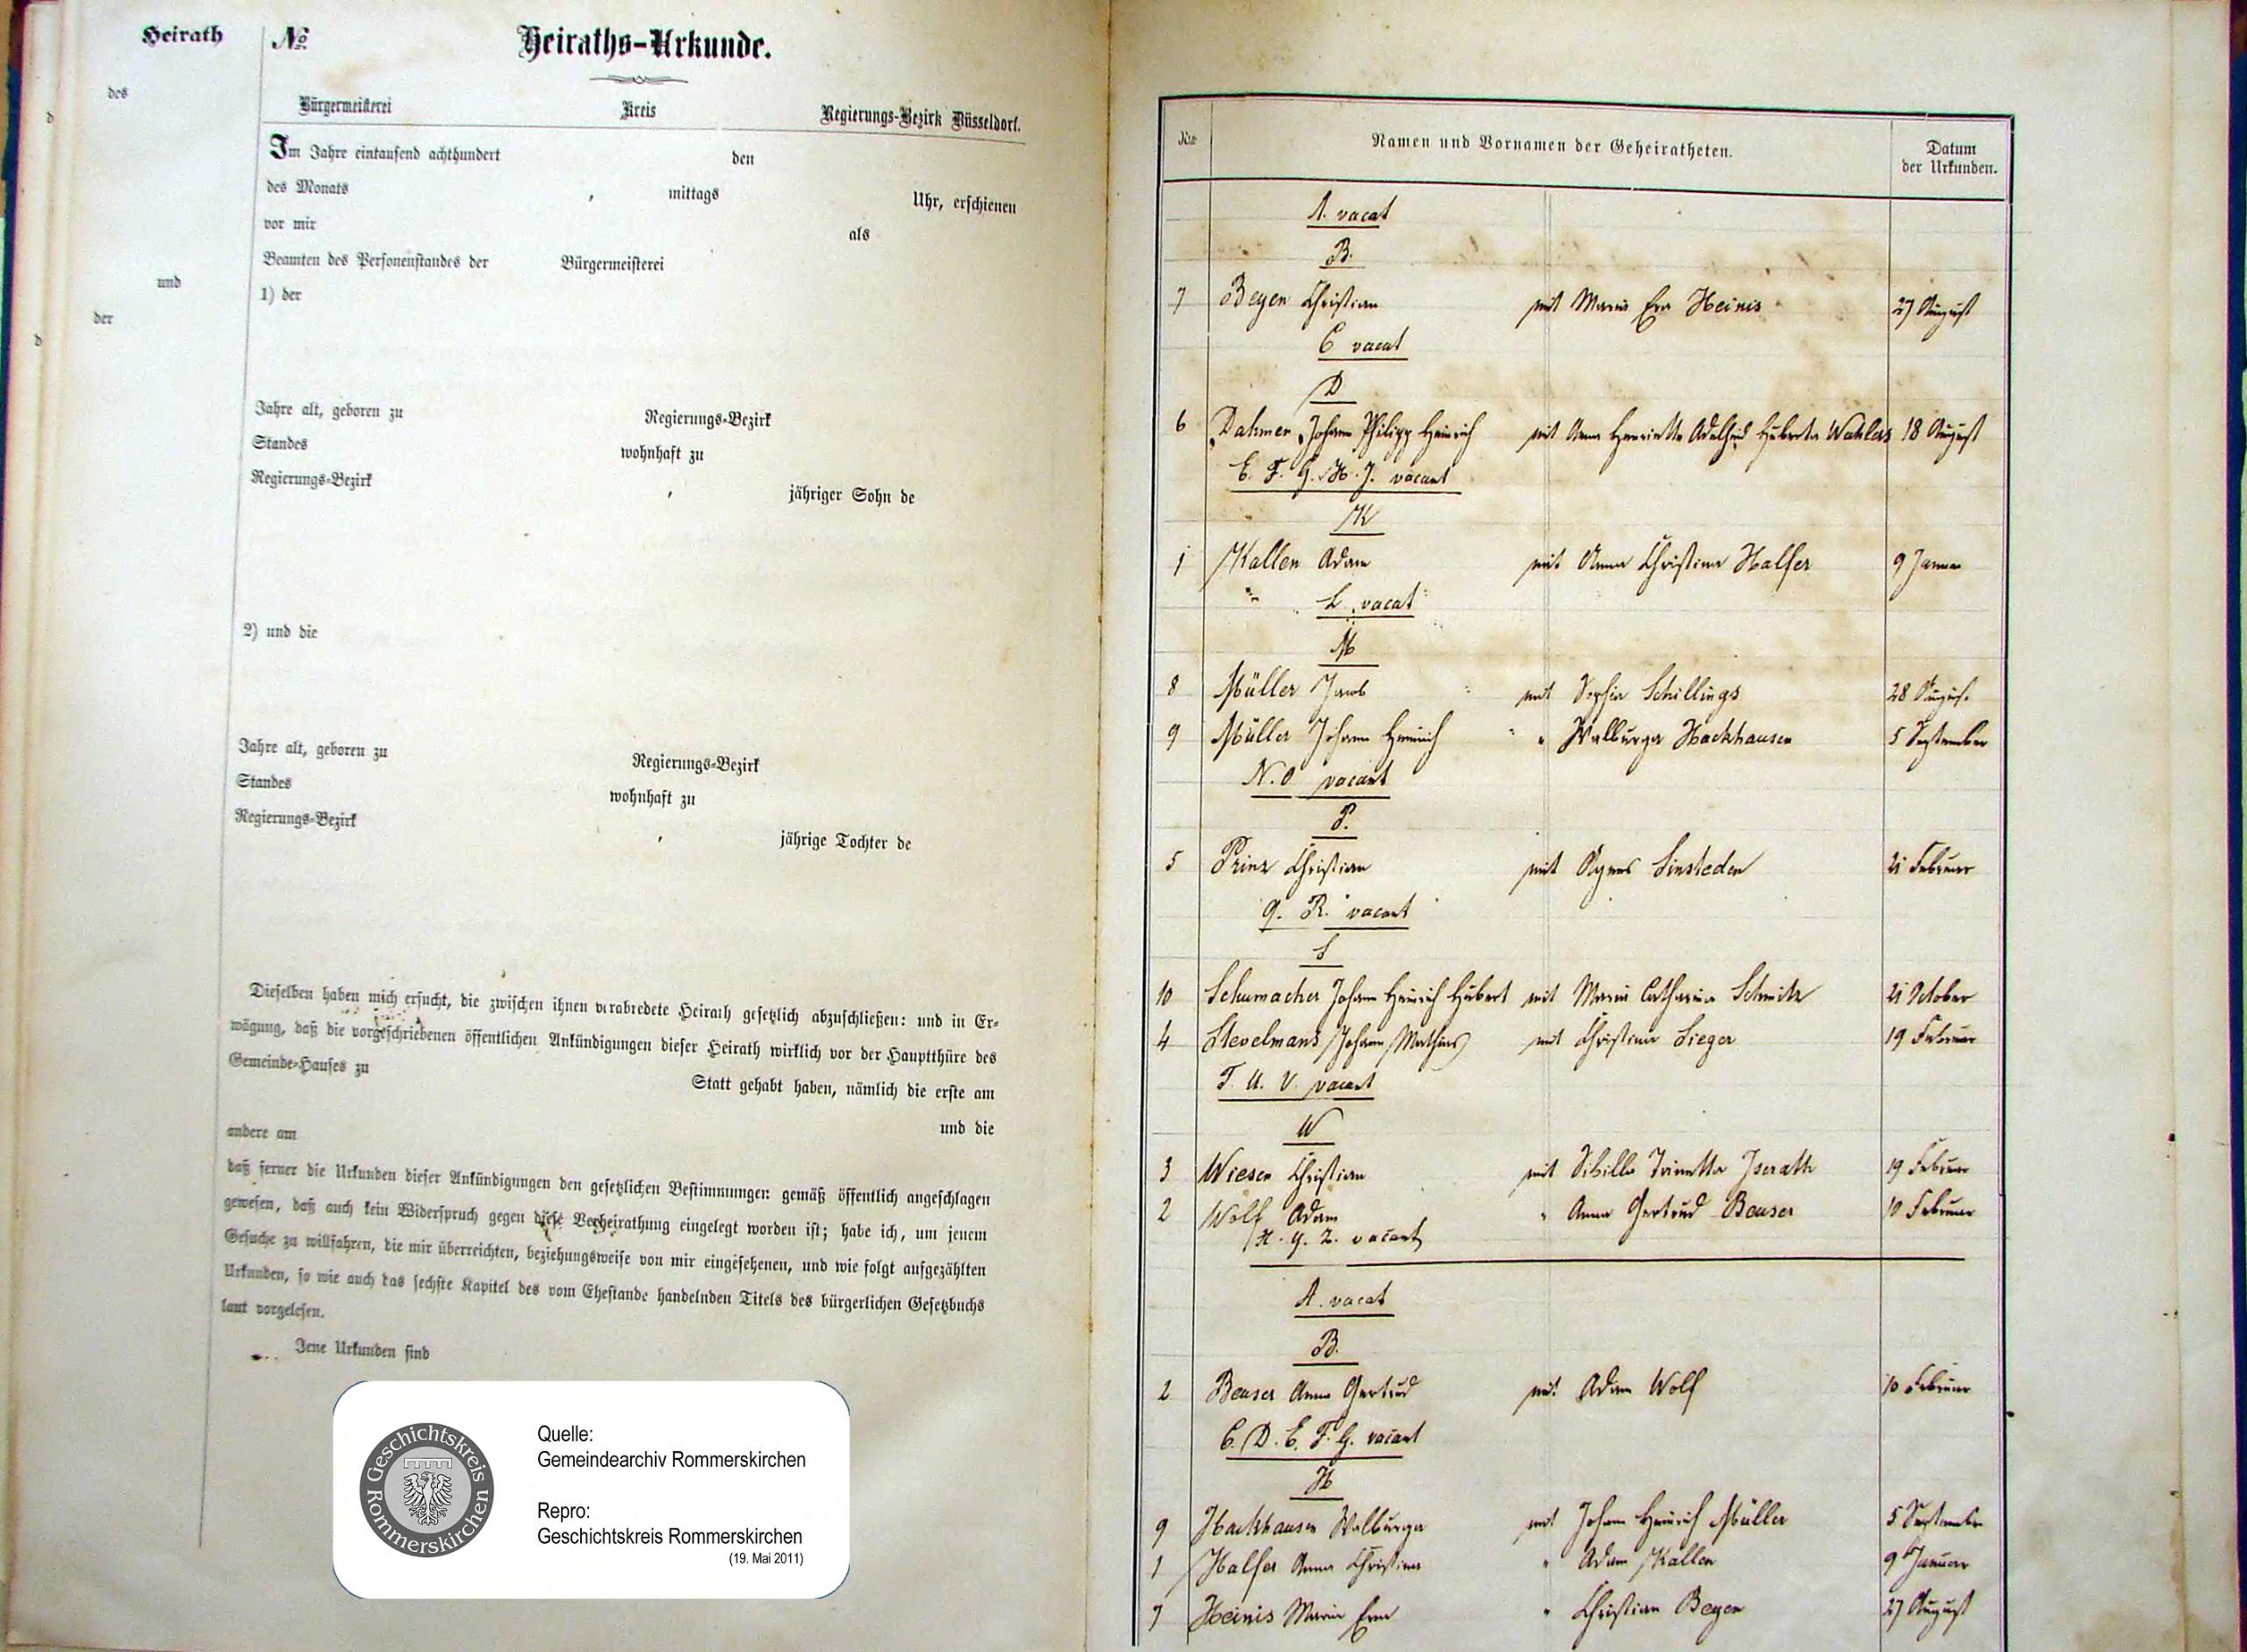 Heirath
des
d
und
der
d
No. Heiraths-Urkunde.
Bürgermeisterei Kreis Regierungs-Bezirk Düsseldorf.
Im Jahre eintausend achthundert den
des Monats , mittags Uhr, erschienen
vor mir als
Beamten des Personenstandes der Bürgermeisterei
1) der
Jahre alt, geboren zu Regierungs-Bezirk
Standes wohnhaft zu
Regierungs-Bezirk , jähriger Sohn de
2) und die
Jahre alt, geboren zu Regierungs-Bezirk
Standes wohnhaft zu
Regierungs-Bezirk , jährige Tochter de
Dieselben haben mich ersucht, die zwischen ihnen verabredete Heirath gesetzlich abzuschließen: und in Er-
wägung, daß die vorgeschriebenen öffentlichen Ankündigungen dieser Heirath wirklich vor der Hauptthüre des
Gemeinde-Hauses zu Statt gehabt haben, nämlich die erste am
und die
andere am
daß ferner die Urkunden dieser Ankündigungen den gesetzlichen Bestimmungen gemäß öffentlich angeschlagen
gewesen, daß auch kein Widerspruch gegen diese Verheirathung eingelegt worden ist; habe ich, um jenem
Gesuche zu willfahren, die mir überreichten, beziehungsweise von mir eingesehenen, und wie folgt aufgezählten
Urkunden, so wie auch das sechste Kapitel des vom Ehestande handelnden Titels des bürgerlichen Gesetzbuchs
laut vorgelesen.
Jene Urkunden sind
Geschichtskreis Rommerskirchen
Quelle:
Gemeindearchiv Rommerskirchen
Repro:
Geschichtskreis Rommerskirchen
(19. Mai 2011)
No. Namen und Vornamen der Geheiratheten. Datum
der Urkunden.
A. vacat
B.
7 Beyen Christian mit Maria Eva Heinis 27 August
C vacat
D
6 Dahmen Johann Philipp Heinrich mit Anna Henriette Adelheid Huberta Wahlers 18 August
E. F. G. H. J. vacant
K
1 Kallen Adam mit Anna Christina Halfer 9 Januar
L. vacat
M
8 Müller Jacob mit Sophia Schillings 28 August
9 Müller Johann Heinrich " Walburga Hackhausen 5 September
N. O vacant
P.
5 Prinz Christian mit Agnes Sinsteden 21 Februar
Q. R. vacant
S
10 Schumacher Johann Heinrich Hubert mit Maria Catharina Schmitz 21 October
4 Stevelmans Johann Mathias mit Christina Sieger 19 Februar
T. U. V. vacant
W
3 Wiesen Christian mit Sibilla Iserath 19 Februar
2 Wolf Adam " Anna Gertrud Beuser 10 Februar
X. Y. Z. vacant
A. vacat
B.
2 Beuser Anna Gertrud mit Adam Wolf 10 Februar
C. D. E. F. G. vacant
H
9 Hackhausen Walburga mit Johann Heinrich Müller 5 September
1 Halfer Anna Christina " Adam Kallen 9 Januar
7 Heinis Maria Eva " Christian Beyen 27 August